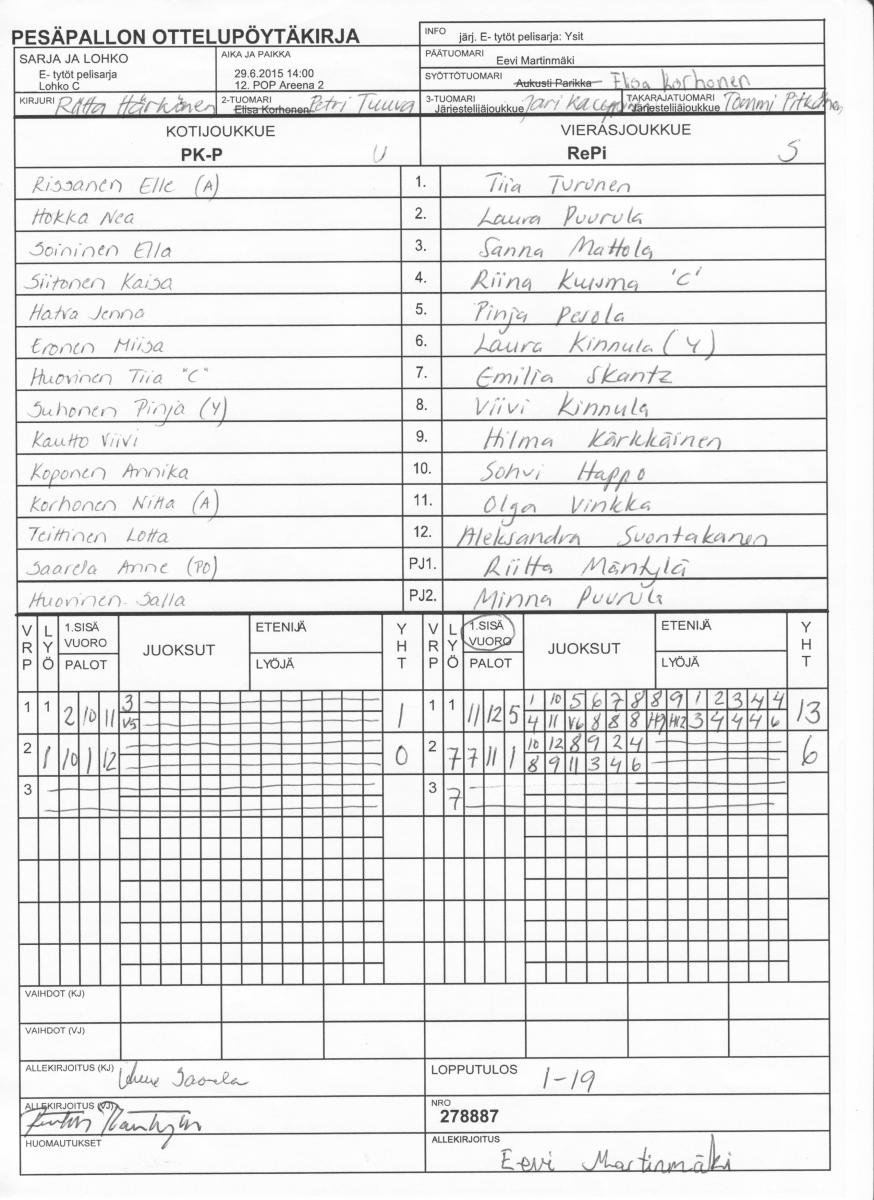 PESÄPALLON OTTELUPÖYTÄKIRJA
INFO järj. E- tytöt pelisarja: Ysit
SARJA JA LOHKO
E- tytöt pelisarja
Lohko C
AIKA JA PAIKKA
29.6.2015 14:00
12. POP Areena 2
PÄÄTUOMARI
Eevi Martinmäki
SYÖTTÖTUOMARI
Aukusti Parikka Elisa Korhonen
KIRJURI Riitta Härkönen
2-TUOMARI
Elisa Korhonen Petri Tuuva
3-TUOMARI
Järjestelijäjoukkue Jari
TAKARAJATUOMARI
Järjestelijäjoukkue Tommi Pitkänen
KOTIJOUKKUE VIERASJOUKKUE
PK-P U RePi S
Rissanen Elle (A) 1. Tiia Turunen
Hokka Nea 2. Laura Puurula
Soininen Ella 3. Sanna Mattola
Siitonen Kaisa 4. Riina Kuisma 'C'
Hatva Jenna 5. Pinja Pesola
Eronen Miisa 6. Laura Kinnula (Y)
Huovinen Tiia "C" 7. Emilia Skantz
Suhonen Pinja (Y) 8. Viivi Kinnula
Kautto Viivi 9. Hilma Kärkkäinen
Koponen Annika 10. Sohvi Happo
Korhonen Nitta (A) 11. Olga Vinkka
Teittinen Lotta 12. Aleksandra Suontakanen
Saarela Anne (PO) PJ1. Riitta Mäntylä
Huovinen Salla PJ2. Minna Puurula
VRP LYÖ 1.SISÄ VUORO PALOT JUOKSUT ETENIJÄ LYÖJÄ YHT VRP LYÖ 1.SISÄ VUORO PALOT JUOKSUT ETENIJÄ LYÖJÄ YHT
1 1 2 10 11 3 1 1 1 11 12 5 1 10 5 6 7 8 8 9 1 2 3 4 4 13
V5 4 11 V6 8 8 8 H9 H12 3 4 4 4 6
2 1 10 1 12 0 2 7 7 11 1 10 12 8 9 2 4 6
8 9 11 3 4 6
3 3 7
VAIHDOT (KJ)
VAIHDOT (VJ)
ALLEKIRJOITUS (KJ) Anne Saarela
LOPPUTULOS 1-19
ALLEKIRJOITUS (VJ) Riitta Mäntylä
NRO
278887
HUOMAUTUKSET
ALLEKIRJOITUS
Eevi Martinmäki